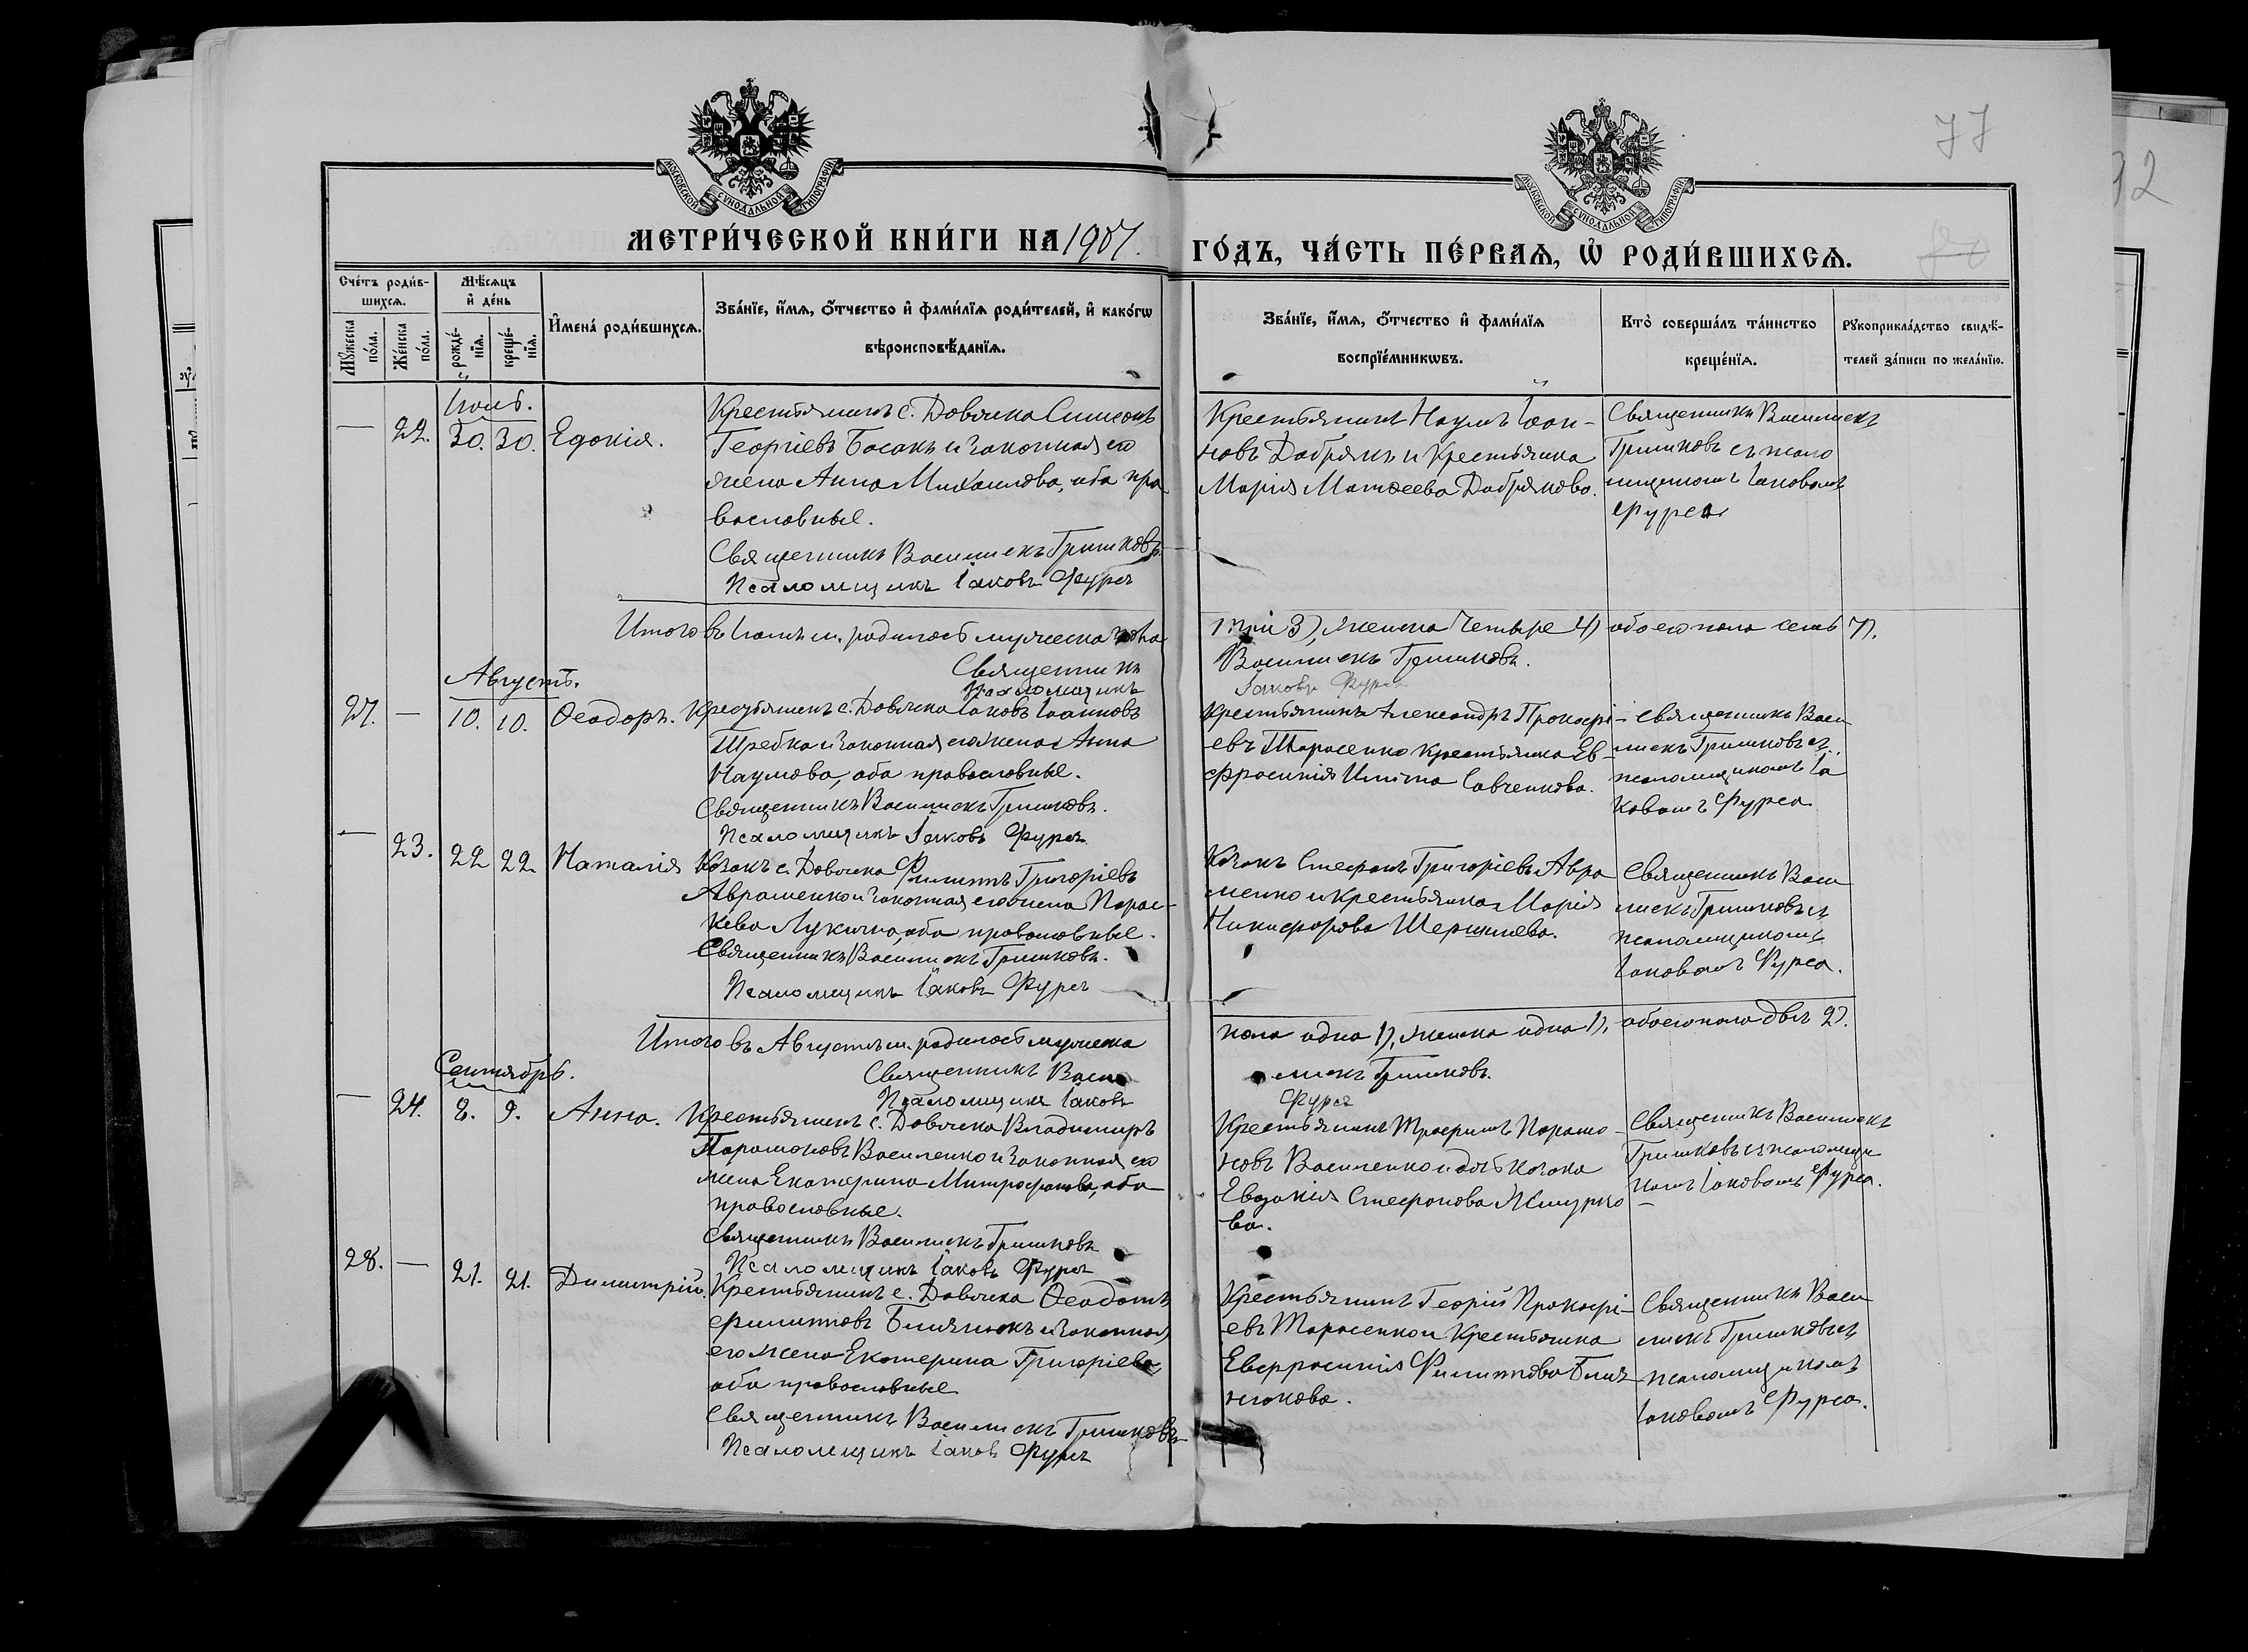 77
92
МОСКОВСКОЙ СѴНОДАЛЬНОЙ ТИПОГРАФІИ
МОСКОВСКОЙ СѴНОДАЛЬНОЙ ТИПОГРАФІИ
МЕТРИ́ЧЕСКОЙ КНИ́ГИ НА 1907.
ГО́ДЪ, ЧА́СТЬ ПЕ́РВАѦ, Ѡ҆ РОДИ́ВШИХСѦ.
Сче́тъ роди́в-
шихсѧ.
Мѣ́сѧцъ
и҆ де́нь
Мꙋ́жеска
по́ла.
Же́нска
по́ла.
рожде́-
нїѧ.
креще́-
нїѧ.
И҆мена́ роди́вшихсѧ.
Зва́нїе, и҆́мѧ, ѻ҆́тчество и҆ фами́лїѧ роди́телей, и҆ како́гѡ
вѣроисповѣ́данїѧ.
Зва́нїе, и҆́мѧ, ѻ҆́тчество и҆ фами́лїѧ
воспрїе́мникѡвъ.
Кто̀ соверша́лъ та́инство
креще́нїѧ.
Рꙋкоприкла́дство свидѣ́-
телей за́писи по жела́нїю.
Іюль.
— 22. 30. 30. Едокія.
Крестьянинъ с. Довляка Симеонъ
Георгіевъ Босакъ и законная его
жена Анна Михаилова, оба пра
вославные.
Священникъ Василискъ Гришковъ
Псаломщикъ Іаковъ Фурса
Крестьянинъ Наумъ Іоан-
новъ Добрякъ и Крестьянка
Марія Матѳеева Добрякова.
Священникъ Василискъ
Гришковъ съ псало
мщикомъ Іаковомъ
Фурса
Итого въ Іюлѣ м. родилось мужеска пола
три 3), женска Четыре 4) обоего пола семь 7).
Священникъ
Василискъ Гришковъ.
Псаломщикъ
Іаковъ Фурса
Августъ.
27. — 10. 10. Ѳеодоръ.
Крестьянинъ с. Довляка Іаковъ Іоанновъ
Требка и законная его жена Анна
Наумова, оба православные.
Священникъ Василискъ Гришковъ.
Псаломщикъ Іаковъ Фурса
Крестьянинъ Александръ Прокофі-
евъ Тарасенко Крестьянка Ев-
фросинія Савченкова.
Священникъ Васи
лискъ Гришковъ съ
псаломщикомъ Іа
ковомъ Фурса
— 23. 22 22. Наталія
Козакъ с. Довляка Филиппъ Григоріевъ
Авраменко и законная его жена Парас-
кева Лукина, оба православные.
Священникъ Василискъ Гришковъ.
Псаломщикъ Іаковъ Фурса
Козакъ Стефанъ Григоріевъ Авра
менко и Крестьянка Марія
Никифорова
Священникъ Васи
лискъ Гришковъ съ
псаломщикомъ
Іаковомъ Фурса.
Итого въ Августѣ м. родилось мужеска
пола одна 1), женска одна 1), обоего пола двѣ 2).
Священникъ Васи
лискъ Гришковъ.
Псаломщикъ Іаковъ
Фурса
Сентябрь.
— 24. 8. 9. Анна.
Крестьянинъ с. Довляка Владимиръ
Парамоновъ Василенко и законная его
жена Екатерина Митрофанова, оба
православные.
Священникъ Василискъ Гришковъ
Псаломщикъ Іаковъ Фурса
Крестьянинъ Трофимъ Парамо-
новъ Василенко и дочь козака
Евдокія Стефанова Жмурко
ва.
Священникъ Василискъ
Гришковъ съ псаломщи
комъ Іаковомъ Фурса.
28. — 21. 21. Димитрій.
Крестьянинъ с. Довляка Ѳеодотъ
Филипповъ Близнюкъ и законная
его жена Екатерина Григоріева,
оба православные
Священникъ Василискъ Гришковъ
Псаломщикъ Іаковъ Фурса
Крестьянинъ Георгій Прокофі-
евъ Тарасенко и Крестьянка
Евфросинія Филиппова Близ-
нюкова.
Священникъ Васи
лискъ Гришковъ съ
псаломщикомъ
Іаковомъ Фурса.